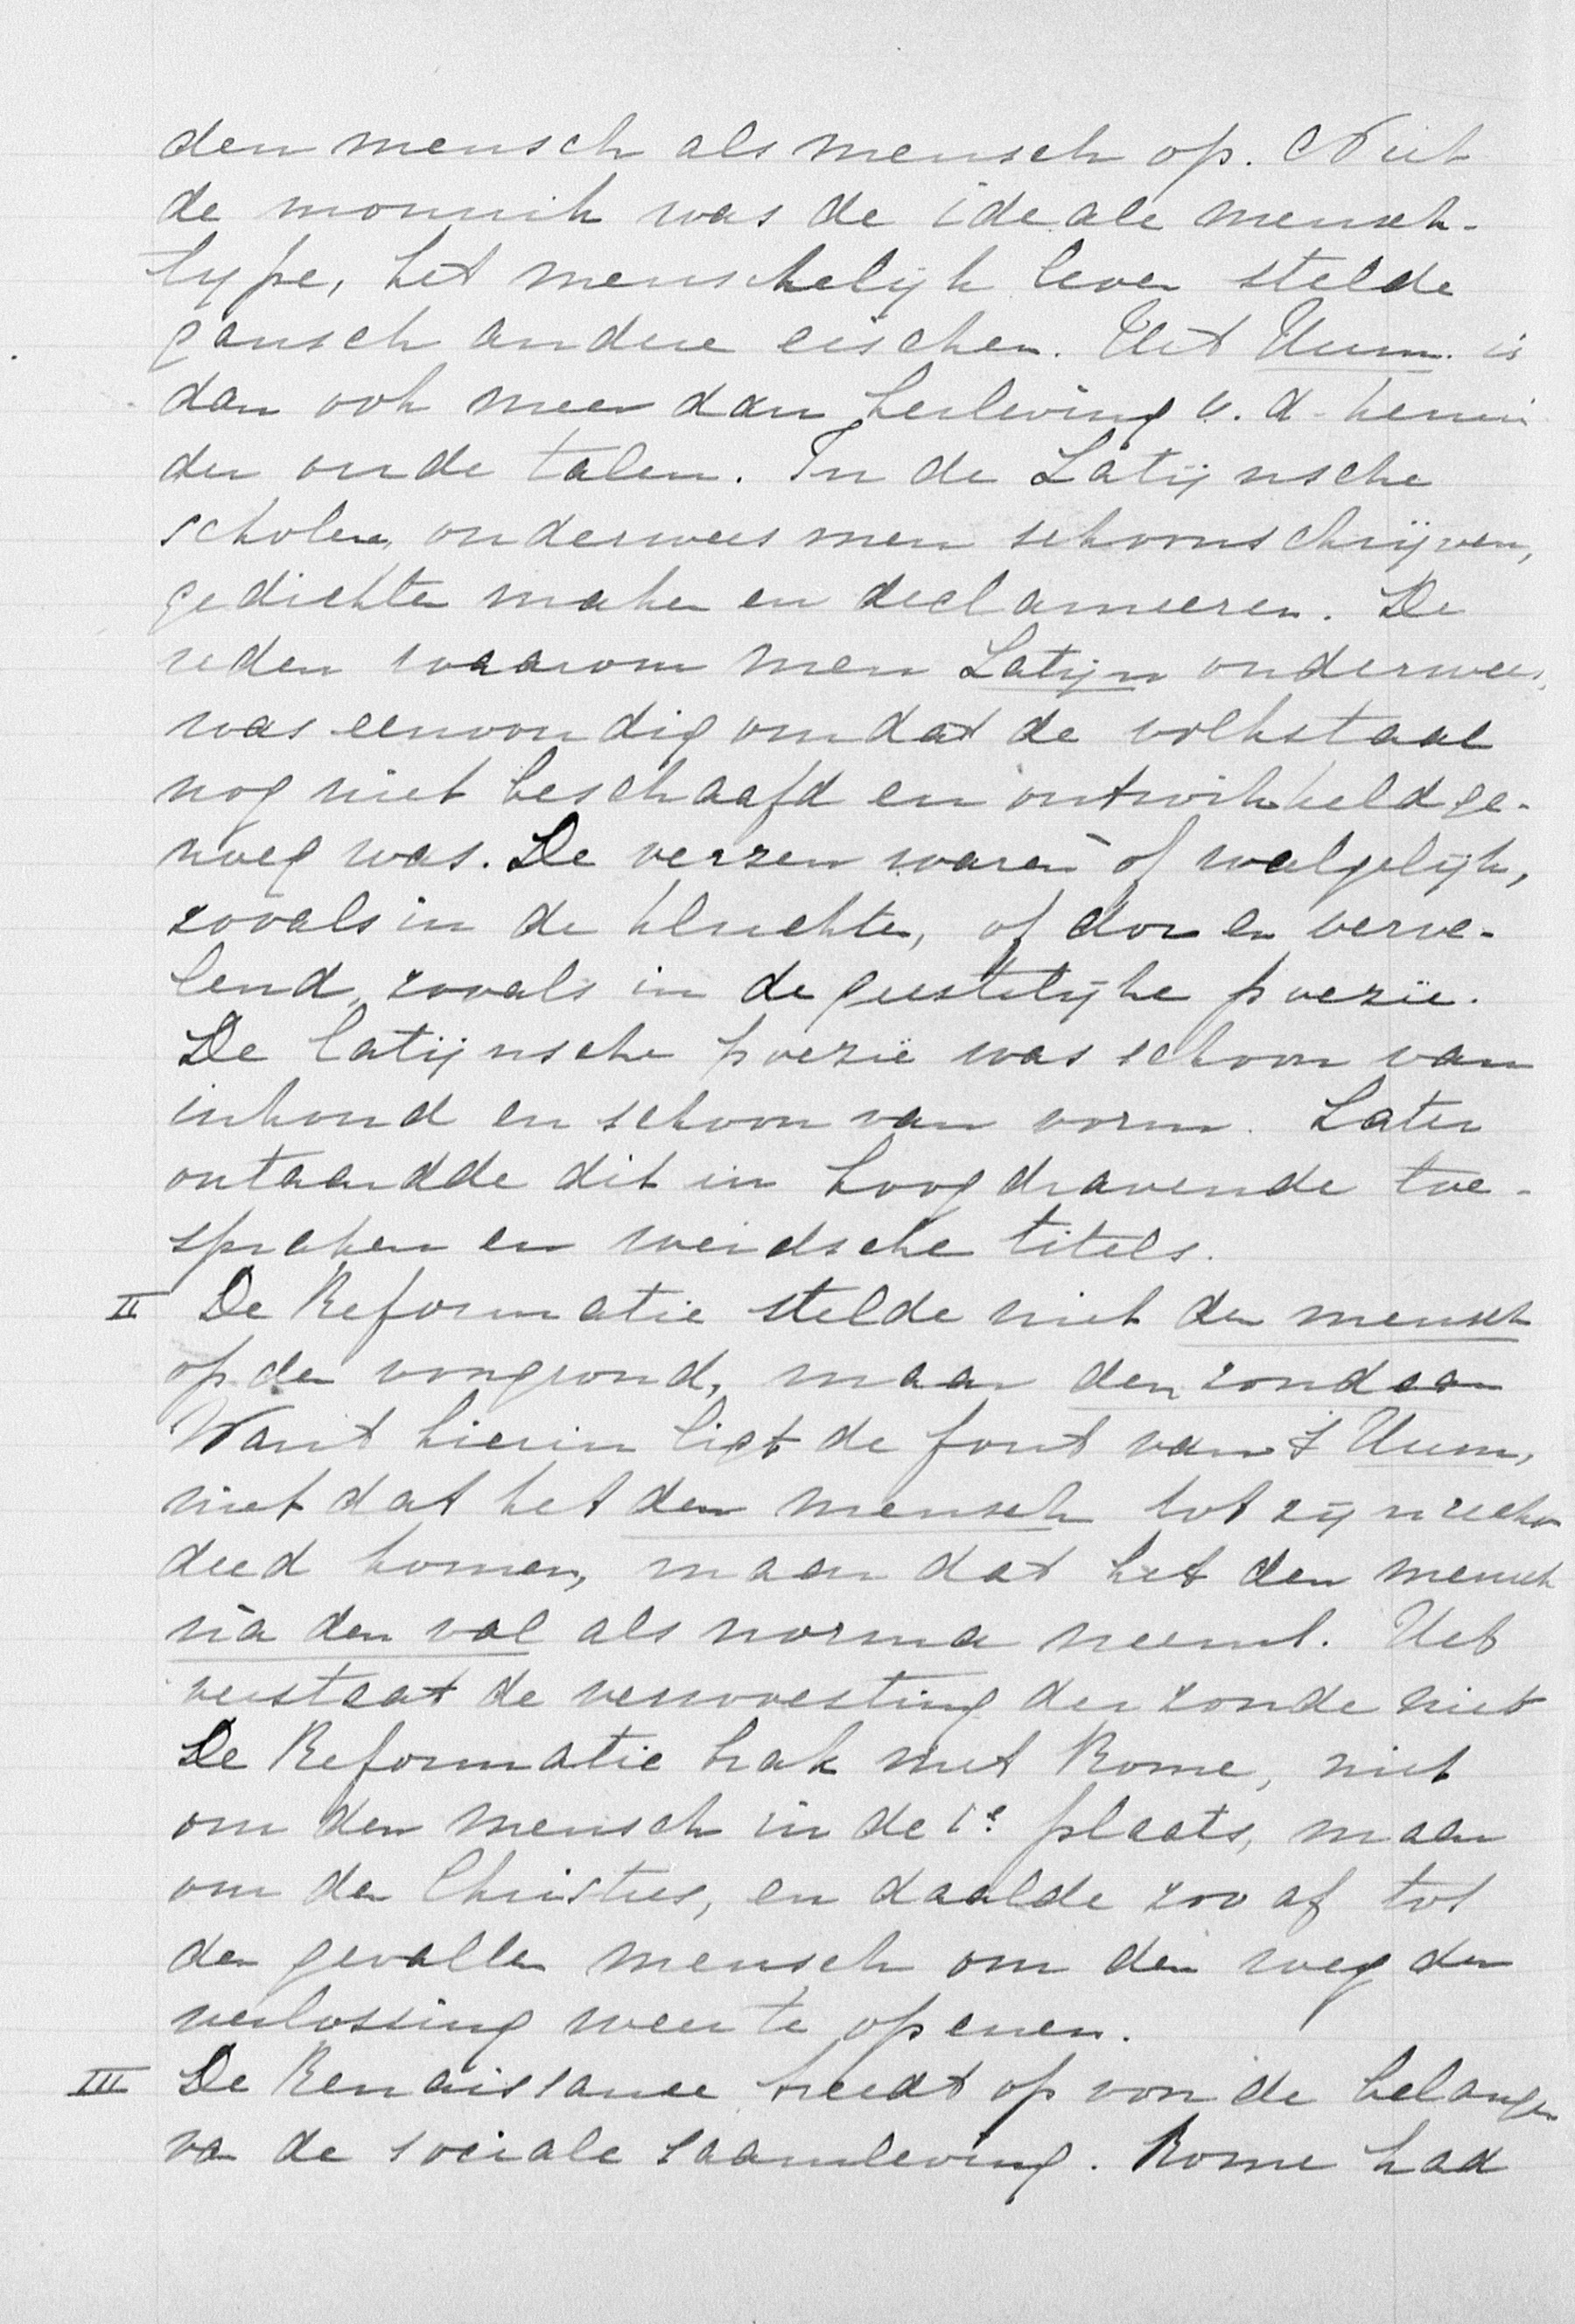 den mensch als mensch op. Niet
de monnik was de ideale mensch-
type, het menschelijk leven stelde
gansch andere eischen. Het Hum. is
dan ook meer dan herleving v. d. kennis
der oude talen. In de Latijnsche
scholen, onderwees men schoonschrijven,
gedichten maken en declameeren. De
reden waarom men Latijn onderwees,
was eenvoudig omdat de volkstaal
nog niet beschaafd en ontwikkeld ge-
noeg was. De verzen waren of walgelijk,
zooals in de kluchten, of dor en verve-
lend, zooals in de geestelijke poezie.
De latijnsche poezie was schoon van
inhoud en schoon van vorm. Later
ontaardde dit in hoogdravende toe-
spraken en weidsche titels.
II De Reformatie stelde niet den mensch
op den voorgrond, maar den zondaar
Want hierin ligt de fout van 't Hum,
niet dat het den mensch tot zijn recht
deed komen, maar dat het den mensch
ná den val als norma neemt. Het
verstaat de verwoesting der zonde niet
De Reformatie brak met Rome, niet
om den mensch in de 1e plaats, maar
om den Christus, en daalde zoo af tot
den gevallen mensch om den weg der
verlossing weer te openen.
III De Renaissance treedt op voor de belangen
van de sociale saamleving. Rome had